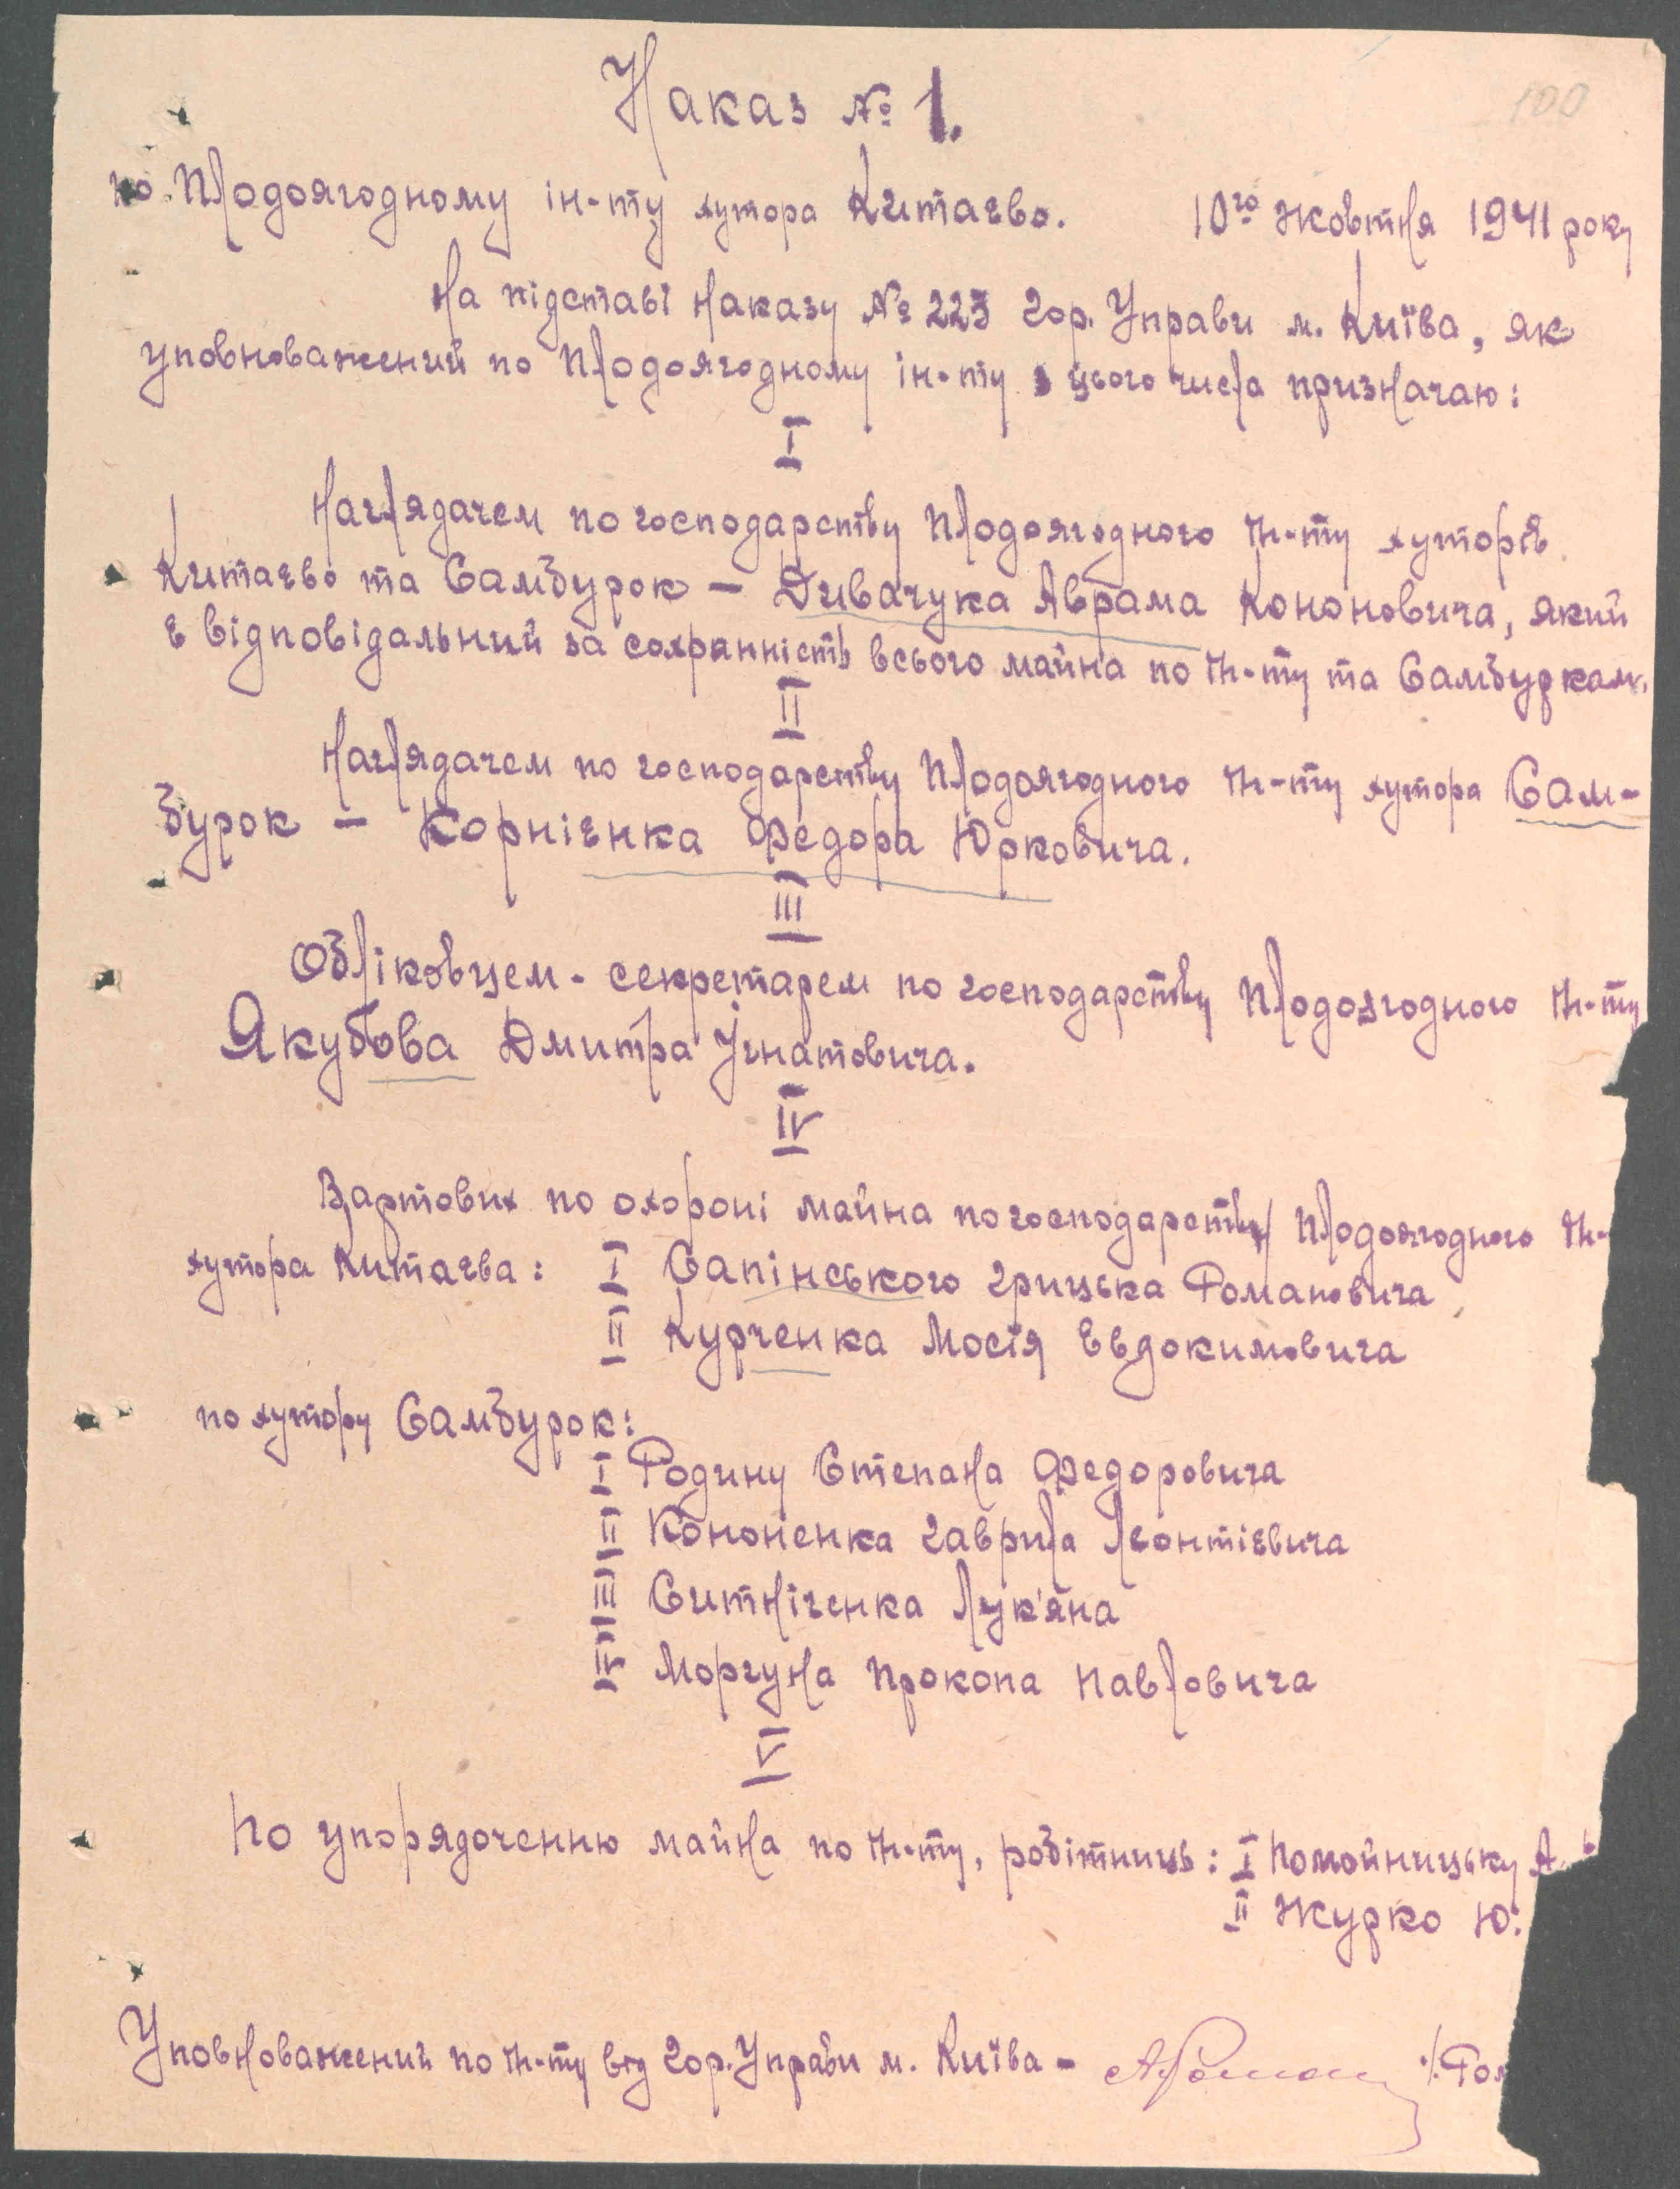 100
Наказ № 1.
по Плодоягодному ін-ту хутора Китаєво. 10го жовтня 1941 року
На підставі наказу № 223 Гор. Управи м. Київа, як
уповноважений по Плодоягодному ін-ту з цього числа призначаю:
I
Наглядачем по господарству Плодоягодного Ін-ту хуторів
Китаєво та Самбурок – Дивачука Аврама Кононовича, який
є відповідальний за сохранність всього майна по Ін-ту та Самбуркам.
II
Наглядачем по господарству Плодоягодного Ін-ту хутора Сам-
бурок – Корнієнка Федора Юрковича.
III
Обліковцем-секретарем по господарству Плодоягодного Ін-ту
Якубова Дмитра Ігнатовича.
IV
Вартових по охороні майна по господарству Плодоягодного Ін-
хутора Китаєва: I Сапінського Грицька Романовича
II Курченка Мосія Евдокимовича
по хутору Самбурок:
I Родину Степана Федоровича
II Кононенка Гаврила Леонтієвича
III Ситніченка Лук'яна
IV Моргуна Прокопа Павловича
V
По упорядоченню майна по Ін-ту, робітниць: I Помойницьку А.
II Журко Ю.
Уповноважений по Ін-ту від Гор. Управи м. Київа –